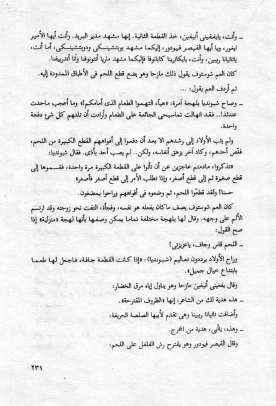 – وأنت، يايفغيني أنيغين، خذ القطعة الثانية. إنها مشهد مدير البريد. وأنت أيها الأمير
إيغور، ويا أيها القيصر فيودور، إليكما مشهد
أنت،
كان العم شوستوف يقول ذلك مازحا وهو يضع قطع اللحم في الأطباق الممدودة إليه.
ثم أردف العم يقول:
– وصاح شبونديا بلهجة آمرة: «هيا، التهموا الطعام الذي أمامكم!» وما أعجب ماحدث
عندئذ!.. فقد انهالت تماسيحي الجائعة على الطعام وأرادت أن تلتهم كل شيء دفعة
واحدة.
ولم يثب الأولاد إلى رشدهم إلا بعد أن دفعوا إلى أفواههم القطع الكبيرة من اللحم،
فغص أحدهم، وكاد آخر يزهق أنفاسه، ولكن.. لم يصب أحد بأذى. فقال شبونديا:
«تذكروا، مادمتم عاجزين عن أن تأتوا على القطعة الكبيرة من اللحم مرة واحدة، فقسموها إلى
قطع صغيرة ثم إلى قطع أصغر، وإذا تطلب الأمر إلى قطع أصغر فأصغر»
حسنا! ولقد قطعوا اللحم، ثم وضعوه في أفواههم وراحوا يمضغون.
كان العم شوستوف يصف ماكان يفعله هو نفسه، وفجأة، التفت نحو زوجته وقد ارتسم
الألم على وجهه. وقال لها بلهجة مختلفة تماما يمكن وصفها بأنها لهجة «منزلية» إذا
صح القول:
– اللحم قاس وجاف، ياعزيزتي!
وراح الأولاد يرددون تعاليم (شبونديا): «إذا كانت القطعة جافة، فاجعل لها طعما
بابتداع خيال جميل».
وقال يفغيني أنيغين مازحا وهو يناول إياه مرق الخضار:
– هذه هدية لك من الشاعر، إنها «الظروف المقترحة».
وأضافت تاتيانا ريبينا وهي تقدم لأبيها الصلصة الحريفة:
– وهذه، ياأبي، هدية من المخرج.
وقال القيصر فيودور وهو يقترح رش الفلفل على اللحم:
٢٣١